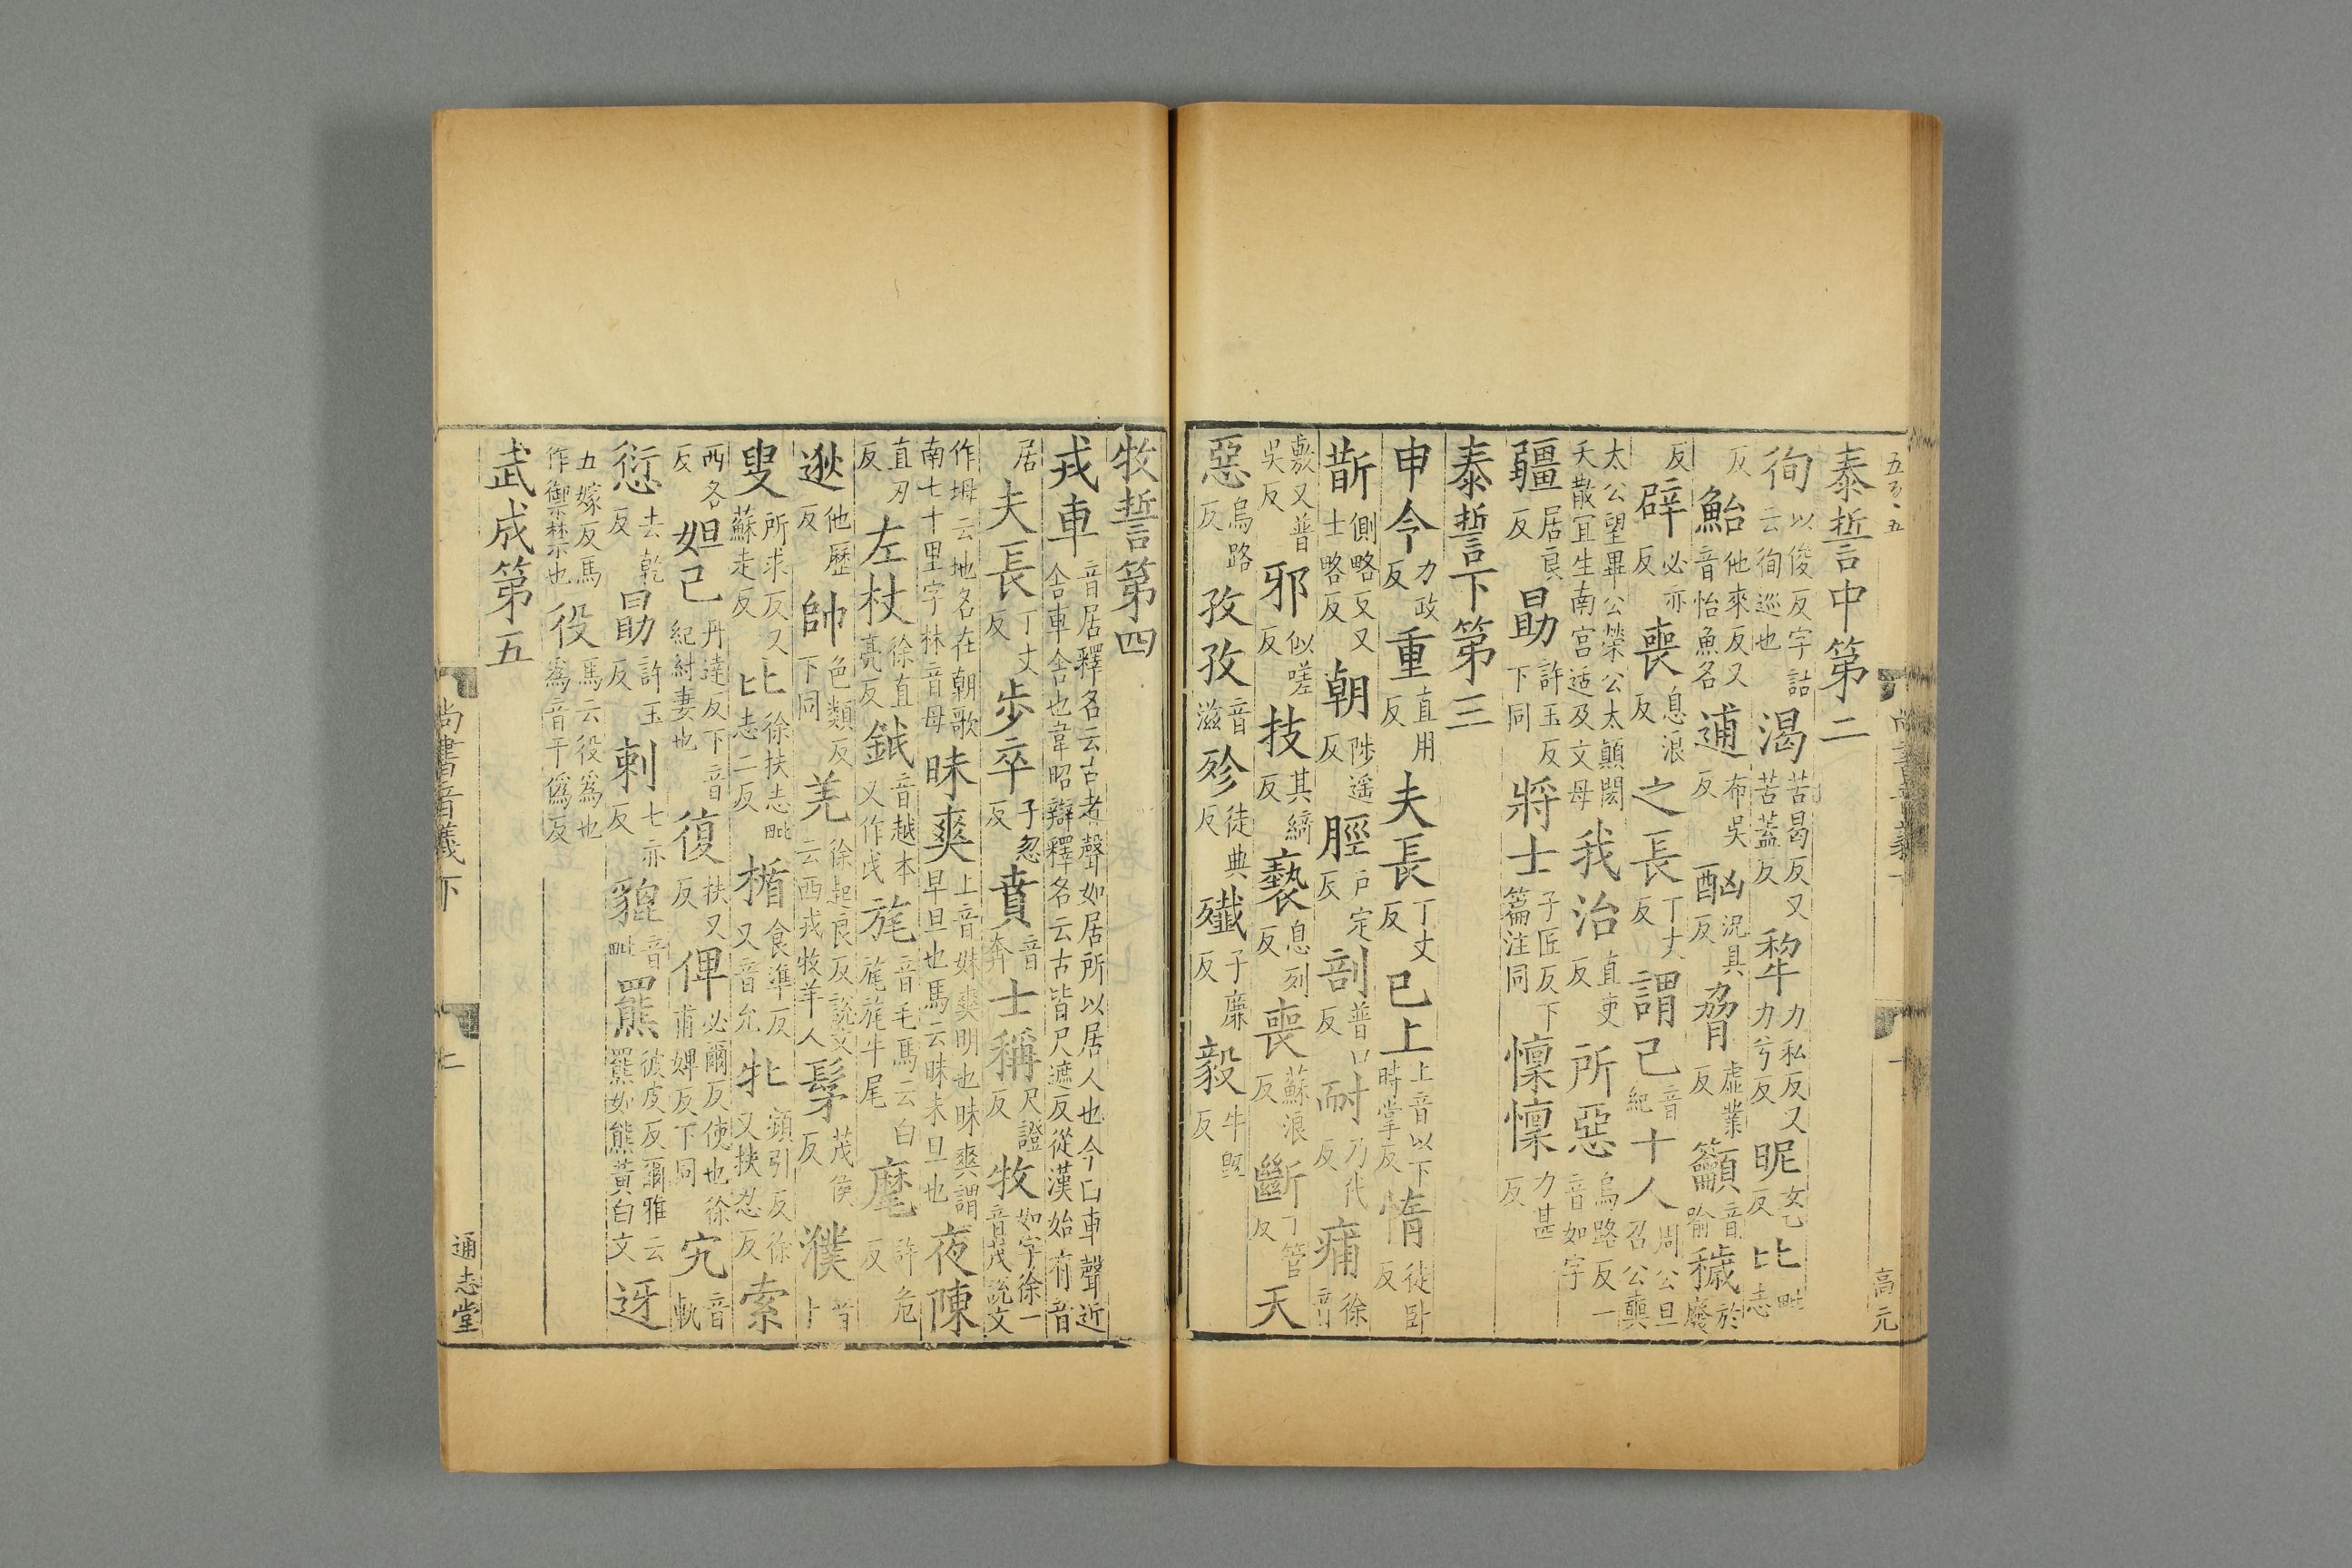 泰誓中第二
徇以俊反字詁云徇巡也渴苦曷反又苦蓋反犂力私反又力兮反昵女乙反比毗志
反鮐他來反又音怡魚名逋布吳反酗況具反脅虛業反籲音喻穢於廢
反辟必亦反喪息浪反之長丁丈反謂己音紀十人周公旦召公奭
太公望畢公榮公太顛閎夭散宜生南宮适及文母我治直吏反所惡烏路反一音如字
疆居良反勗許玉反下同將士子匠反下篇注同懍懍力甚反
泰誓下第三
申令力政反重直用反夫長丁丈反已上上音以下時掌反惰徒卧反
斮側略反又士略反朝陟遥反脛戶定反剖普口反耐乃代反痡徐音
敷又普吳反邪似嗟反技其綺反褻息列反喪蘇浪反斷丁管反天
惡烏路反孜孜音滋殄徒典反殲子廉反毅牛旣反
高元
牧誓第四
戎車音居釋名云古者聲如居所以居人也今曰車聲近舍車舍也韋昭辯釋名云古皆尺遮反從漢始有音
居夫長丁丈反步卒子忽反賁音奔士稱尺證反牧如字徐一音茂說文
作坶云地名在朝歌南七十里字林音母昧爽上音妹爽明也昧爽謂早旦也馬云昧未旦也夜陳
直刃反左杖徐直亮反鉞音越本又作戉旄音毛馬云白旄旄牛尾麾許危反
逖他歷反帥色類反下同羌徐起良反說文云西戎牧羊人髳茂侯反濮音卜
叟所求反又蘇走反比徐扶志毗志二反楯食準反又音允牝頻引反徐又扶忍反索
西各反妲己丹達反下音紀紂妻也復扶又反俾必爾反使也徐甫婢反下同宄音軌
愆去乾反勗許玉反刺七亦反貔音毗羆彼皮反爾雅云羆如熊黃白文迓
五嫁反馬作禦禁也役馬云役爲也爲音于僞反
武成第五
尚書音義下
通志堂